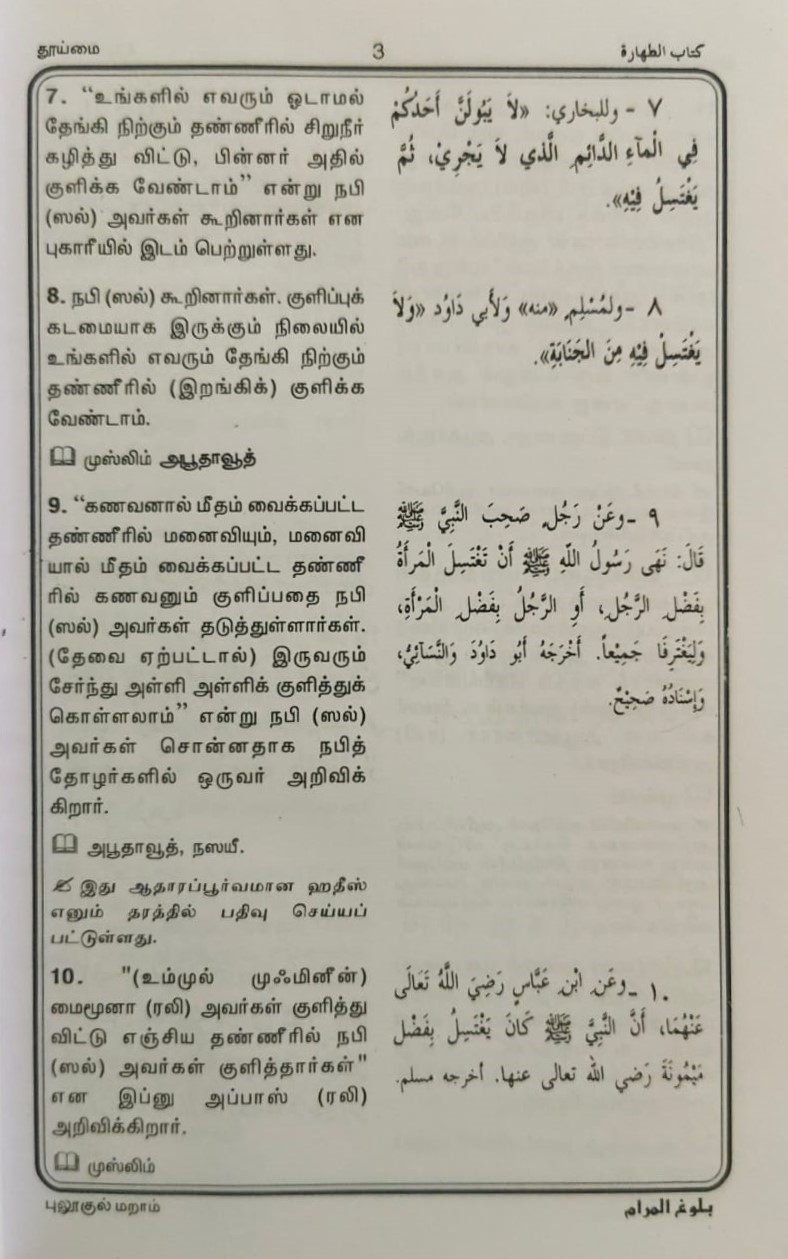 தூய்மை
3
كتاب الطهارة
7. “உங்களில் எவரும் ஓடாமல்
தேங்கி நிற்கும் தண்ணீரில் சிறுநீர்
கழித்து விட்டு, பின்னர் அதில்
குளிக்க வேண்டாம்” என்று நபி
(ஸல்) அவர்கள் கூறினார்கள் என
புகாரீயில் இடம் பெற்றுள்ளது.
٧ - وللبخاري: «لاَ يَبُولَنَّ أَحَدُكُمْ
فِي الْمَآءِ الدَّائِمِ الَّذي لاَ يَجْرِيْ، ثُمَّ
يَغْتَسِلُ فِيْهِ».
8. நபி (ஸல்) கூறினார்கள். குளிப்புக்
கடமையாக இருக்கும் நிலையில்
உங்களில் எவரும் தேங்கி நிற்கும்
தண்ணீரில் (இறங்கிக்) குளிக்க
வேண்டாம்.
முஸ்லிம் அபூதாவூத்
٨ - ولمُسْلِمِ «منه» وَلأبي دَاوُد «وَلاَ
يَغْتَسِلْ فِيْهِ مِنَ الجَنَابَةِ».
9. “கணவனால் மீதம் வைக்கப்பட்ட
தண்ணீரில் மனைவியும், மனைவி
யால் மீதம் வைக்கப்பட்ட தண்ணீ
ரில் கணவனும் குளிப்பதை நபி
(ஸல்) அவர்கள் தடுத்துள்ளார்கள்.
(தேவை ஏற்பட்டால்) இருவரும்
சேர்ந்து அள்ளி அள்ளிக் குளித்துக்
கொள்ளலாம்” என்று நபி (ஸல்)
அவர்கள் சொன்னதாக நபித்
தோழர்களில் ஒருவர் அறிவிக்
கிறார்.
அபூதாவூத், நஸயீ.
இது ஆதாரப்பூர்வமான ஹதீஸ்
எனும் தரத்தில் பதிவு செய்யப்
பட்டுள்ளது.
٩ -وعَنْ رَجُلٍ صَحِبَ النَّبِيَّ ﷺ
قَالَ: نَهَى رَسُولُ اللَّهِ ﷺ أَنْ تَغْتَسِلَ الْمَرأَةُ
بِفَضْلِ الرَّجُلِ، أَوِ الرَّجُلُ بِفَضْلِ الْمَرْأَةِ،
وَلِيَغْتَرِفَا جَمِيْعاً. أَخْرَجَهُ أَبُو دَاوُدَ وَالنَّسَآئِيُّ،
وَإِسْنَادُهُ صَحِيْحٌ.
10. "(உம்முல் முஃமினீன்)
மைமூனா (ரலி) அவர்கள் குளித்து
விட்டு எஞ்சிய தண்ணீரில் நபி
(ஸல்) அவர்கள் குளித்தார்கள்"
என இப்னு அப்பாஸ் (ரலி)
அறிவிக்கிறார்.
முஸ்லிம்
١٠ -وعَنِ ابْنِ عَبَّاسٍ رَضِيَ اللَّهُ تَعَالَى
عَنْهُمَا، أَنَّ النَّبِيَّ ﷺ كَانَ يَغْتَسِلُ بِفَضْلِ
مَيْمُونَةَ رَضي الله تعالى عنها. أخرجه مسلم.
புலூகுல் மறாம்
بلوغ المرام